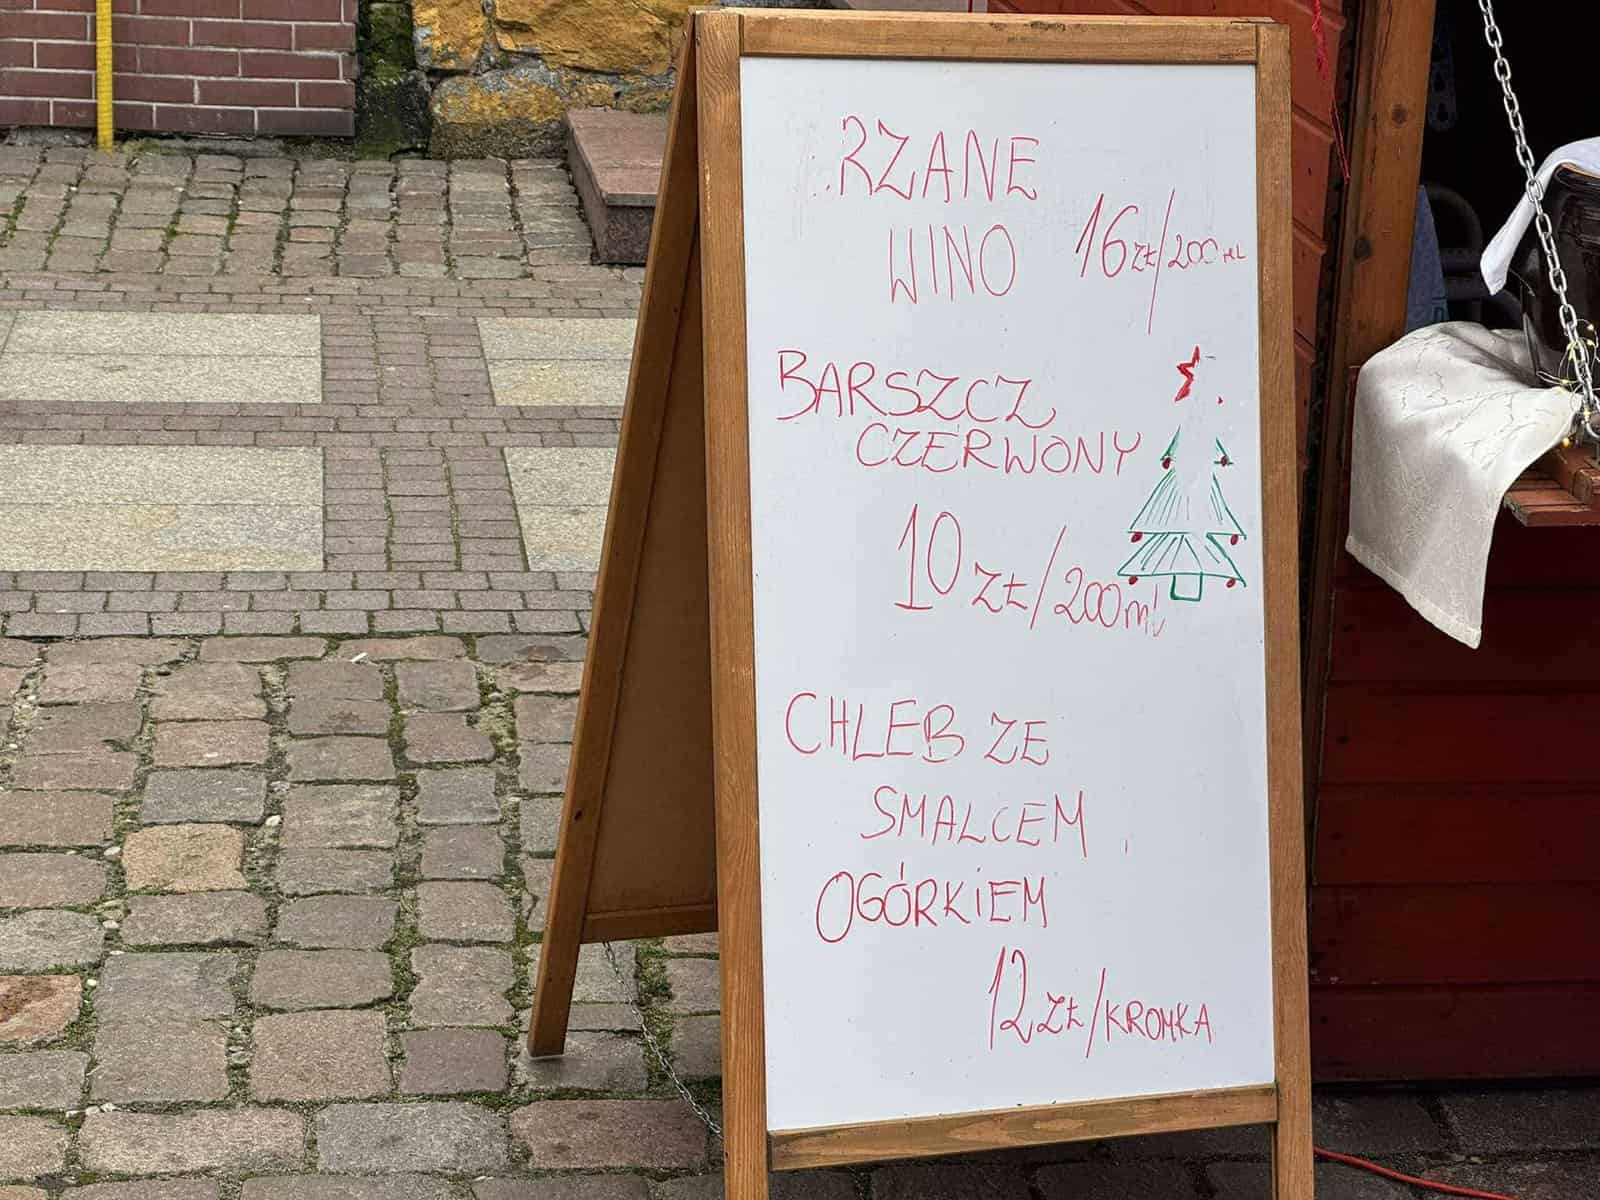 ..RZANE
WINO 16 ZŁ/200 ML
BARSZCZ
CZERWONY
10 ZŁ/200ml
CHLEB ZE
SMALCEM
OGÓRKIEM
12 ZŁ/KROMKA